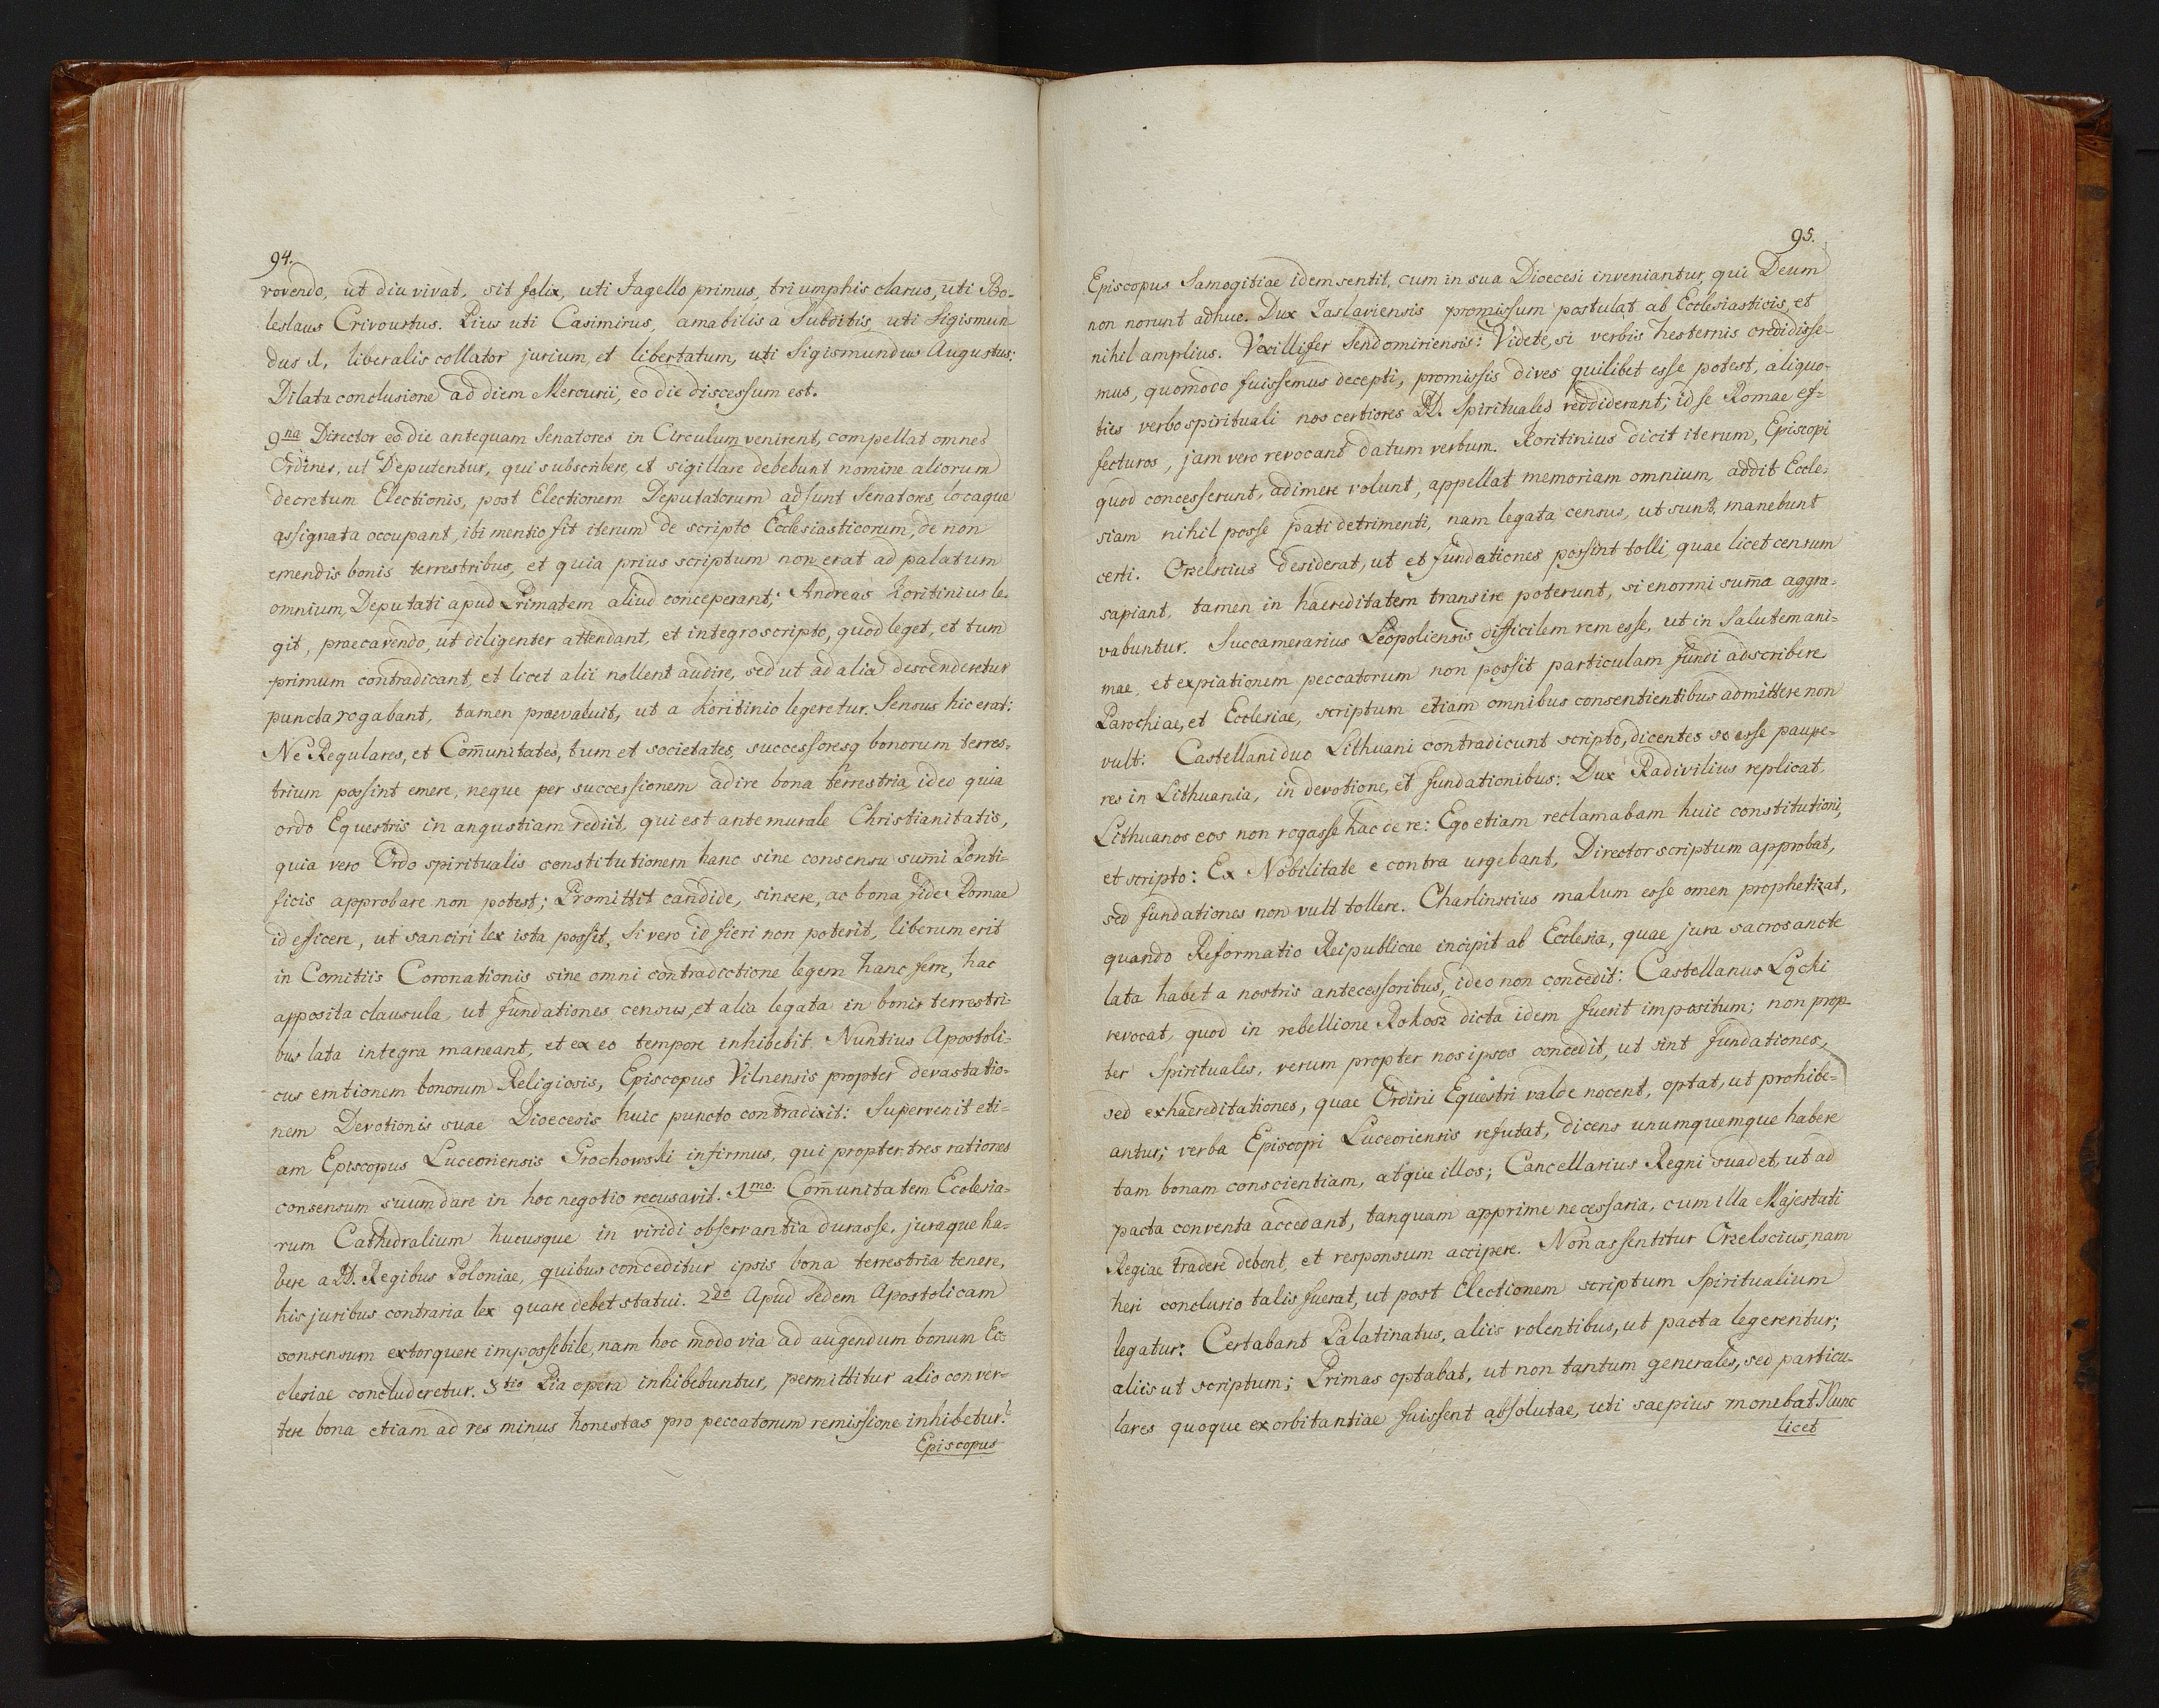 94.
vovendo, ut diu vivat, sit felix, uti Jagello primus, triumphis clarus, uti Bo-
leslaus Crivoustus. Pius uti Casimirus, amabilis a Subditis, uti Sigismun
dus I, liberalis collator jurium, et libertatum, uti Sigismundus Augustus:
Dilata conclusione ad diem Mercurii, eo die discessum est.
9na Director eo die antequam Senatores in Circulum venirent, compellat omnes
Ordines, ut Deputentur, qui subscribere, et sigillare debebunt nomine aliorum
decretum Electionis, post Electionem Deputatorum adsunt Senatores, locaque
assignata occupant, ibi mentio fit iterum de scripto Ecclesiasticorum, de non
emendis bonis terrestribus, et quia prius scriptum non erat ad palatum
omnium, Deputati apud Primatem aliud conceperant; Andreas Koritinius le-
git, praecavendo, ut diligenter attendant, et integro scripto, quod leget, et tum
primum contradicant, et licet alii nollent audire, sed ut ad alia descenderetur
puncta rogabant, tamen praevaluit, ut a Koritinio legeretur. Sensus hic erat:
Ne Regulares, et Com̄unitates, tum et societates, successoresq bonorum terres-
trium possint emere, neque per successionem adire bona terrestria, ideo quia
ordo Equestris in angustiam rediit, qui est antemurale Christianitatis,
quia vero Ordo spiritualis constitutionem hanc sine consensu sum̄i Ponti-
ficis approbare non potest; Promittit candide, sincere, ac bona fide Romae
id efficere, ut sanciri lex ista possit, Si vero id fieri non poterit, liberum erit
in Comitiis Coronationis sine omni contradictione legem hanc ferre, hac
apposita clausula, ut fundationes census, et alia legata in bonis terrestri-
bus lata integra maneant, et ex eo tempore inhibebit. Nuntius Apostoli-
cus emtionem bonorum Religiosis, Episcopus Vilnensis propter devastatio-
nem Devotionis suae Dioecesis huic puncto contradixit: Supervenit eti-
am Episcopus Luceoriensis Grochowski infirmus, qui propter tres rationes
consensum suum dare in hoc negotio recusavit. 1mo. Com̄unitatem Ecclesia-
rum Cathedralium hucusque in viridi observantia durasse, juraque ha-
bere a DD. Regibus Poloniae, quibus conceditur ipsis bona terrestria tenere,
his juribus contraria lex quare debet statui. 2do Apud Sedem Apostolicam
consensum extorquere impossibile, nam hoc modo via ad augendum bonum Ec-
clesiae concluderetur. 3tio Pia opera inhibebuntur, permittitur alio conver-
tere bona etiam ad res minus honestas pro peccatorum remissione inhibetur?
Episcopus
95.
Episcopus Samogitiae idem sentit, cum in sua Dioecesi inveniantur, qui Deum
non norunt adhuc. Dux Zaslaviensis promissum postulat ab Ecclesiasticis, et
nihil amplius. Vexillifer Sendomiriensis: Videte, si verbis hesternis credidisse-
mus, quomodo fuissemus decepti, promissis dives quilibet esse potest, aliquo-
ties verbo spirituali nos certiores DD. Spirituales reddiderant; id se Romae ef-
fecturos, jam vero revocant datum verbum. Koritinius dicit iterum, Episcopi
quod concesserunt, adimere volunt, appellat memoriam omnium, addit Eccle-
siam nihil posse pati detrimenti, nam legata census, ut sunt, manebunt
certi. Orzelscius desiderat, ut et fundationes possint tolli, quae licet censum
sapiant, tamen in haereditatem transire poterunt, si enormi sum̄a aggra-
vabuntur. Succamerarius Leopoliensis difficilem rem esse, ut in Salutem ani-
mae, et expiationem peccatorum non possit particulam fundi adscribere
Parochiae, et Ecclesiae, scriptum etiam omnibus consentientibus admittere non
vult: Castellani duo Lithuani contradicunt scripto, dicentes se esse paupe-
res in Lithuania, in devotione, et fundationibus: Dux Radivilius replicat,
Lithuanos eos non rogasse hac de re: Ego etiam reclamabam huic constitutioni,
et scripto: Ex Nobilitate e contra urgebant, Director scriptum approbat,
sed fundationes non vult tollere. Charlinscius malum esse omen prophetizat,
quando Reformatio Reipublicae incipit ab Ecclesia, quae jura sacrosancte
lata habet a nostris antecessoribus, ideo non concedit: Castellanus Lọcki
revocat, quod in rebellione Rokosz dicta idem fuerit impositum; non prop-
ter Spirituales, verum propter nos ipsos concedit, ut sint fundationes,
sed exhaereditationes, quae Ordini Equestri valde nocent, optat, ut prohibe-
antur; verba Episcopi Luceoriensis refutat, dicens unumquemque habere
tam bonam conscientiam, atque illos; Cancellarius Regni suadet, ut ad
pacta conventa accedant, tanquam apprime necessaria, cum illa Majestati
Regiae tradere debent, et responsum accipere. Non assentitur Orzelscius, nam
heri conclusio talis fuerat, ut post Electionem scriptum Spiritualium
legatur: Certabant Palatinatus, aliis volentibus, ut pacta legerentur;
aliis ut scriptum; Primas optabat, ut non tantum generales, sed particu-
lares quoque exorbitantiae fuissent absolutae, uti saepius monebat Nunc
licet